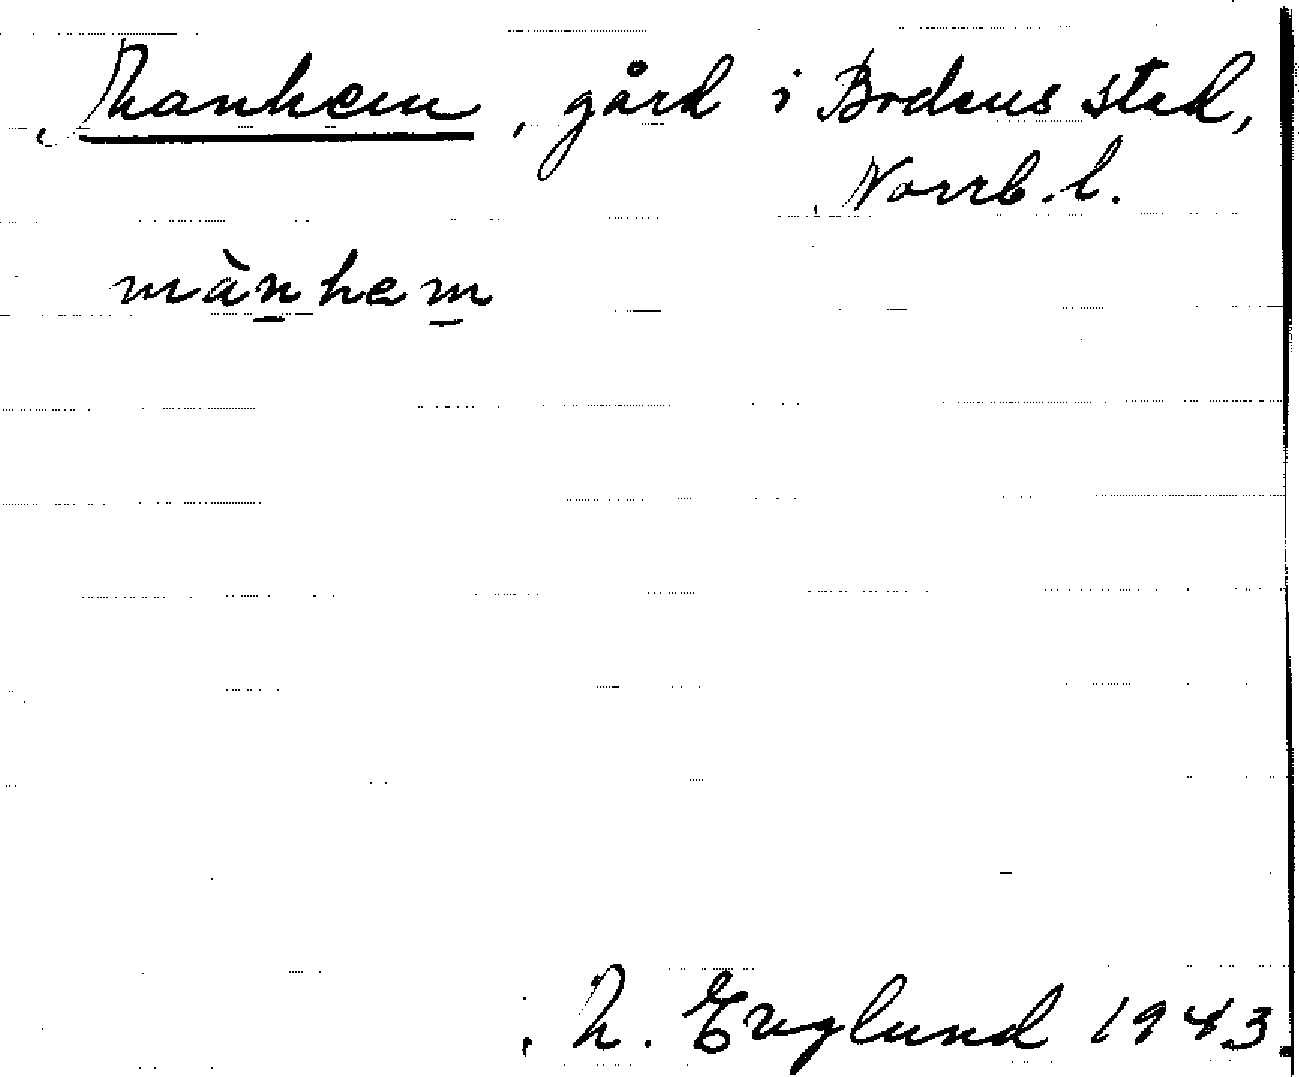 Manhem, gård i Bodens stad,
Norrb. l.
mànhem
M. Englund 1943.